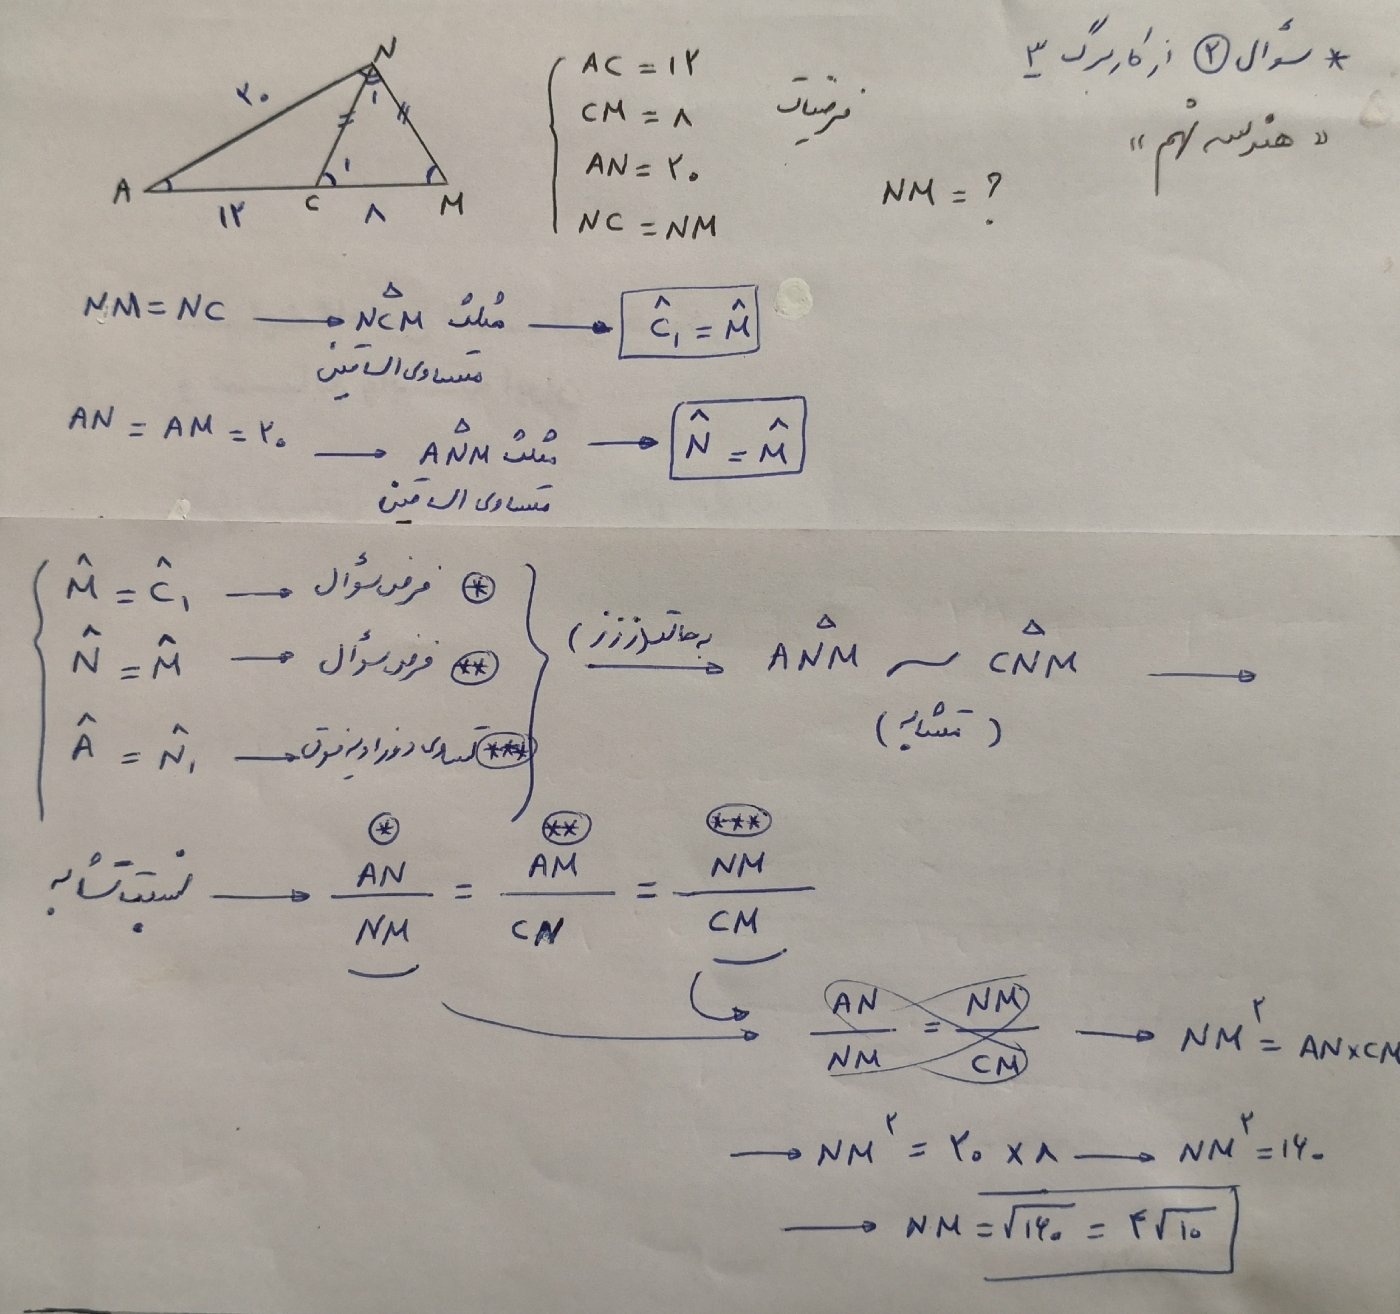 * سؤال ② از کاربرگ ۳
« هندسه نهم »
N
۲۰
۱
۱
A
۱۲
C
۸
M
AC = ۱۲
CM = ۸
AN = ۲۰
NC = NM
فرضیات
NM = ?
NM = NC → مثلث NCM متساوی الساقین → Ĉ₁ = M̂
AN = AM = ۲۰ → مثلث ANM متساوی الساقین → N̂ = M̂
M̂ = Ĉ₁ → فرض سؤال *
N̂ = M̂ → فرض سؤال **
Â = N̂₁ → تساوی دو زاویه فوق ***
به حالت (ززز) → ANM ~ CNM →
(متشابه)
* ** ***
نسبت تشابه → AN/NM = AM/CN = NM/CM
AN/NM = NM/CM → NM² = AN×CM
→ NM² = ۲۰ × ۸ → NM² = ۱۶۰
→ NM = √۱۶۰ = ۴√۱۰